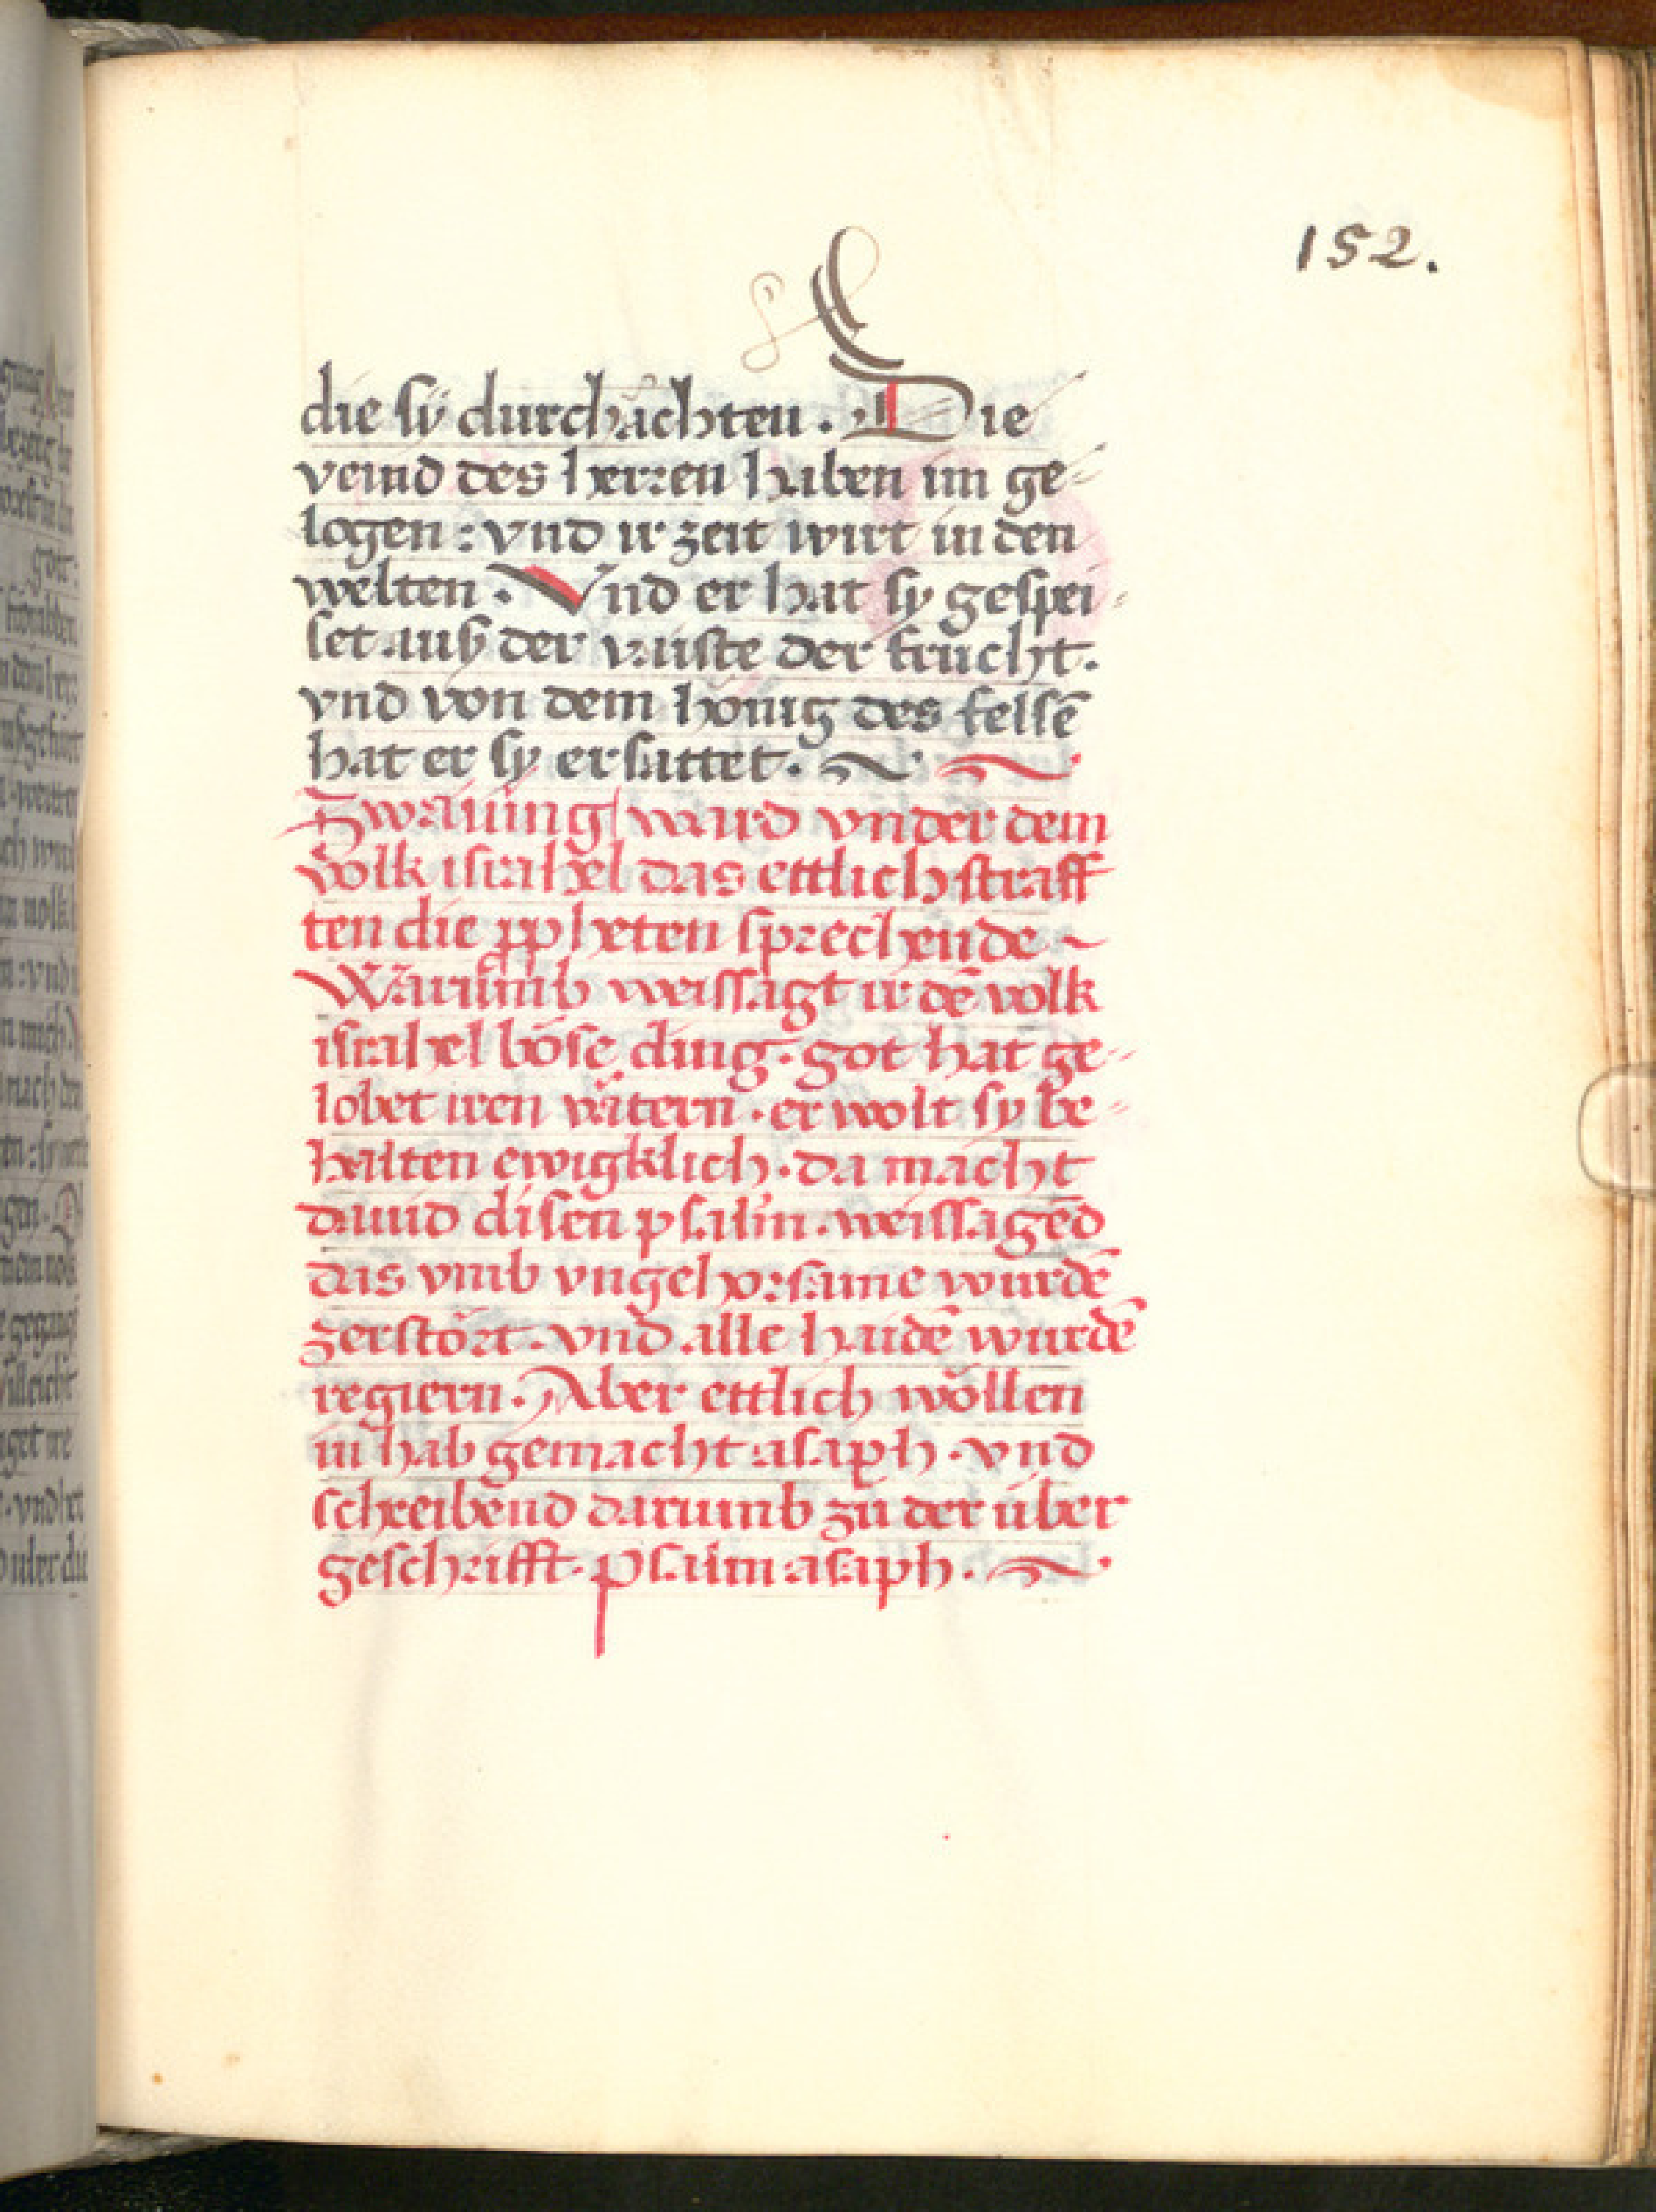 152.
die sÿ durchächten. Die
veind des herren haben im ge-
logen: vnd ir zeit wirt in den
welten. Vnd er hat sy gespei-
set auß der vaiste der frücht.
vnd von dem hönig des felsē
hat er sy ersattet.
Zwaiung ward vnder dem
volk israhel das ettlich straff
ten die ꝓpheten sprechende
Warumb weissagt ir dē volk
israhel böse ding. got hat ge-
lobet iren vätern. er wolt sy be-
halten ewigklich. da macht
dauid disen psalm. weissagēd
das vmb vngehorsame wurdē
zerstört. vnd alle haidē wurdē
regiern. Aber ettlich wöllen
in hab gemacht asaph. vnd
schreibend darumb zu der über
geschrifft. psalm asaph.